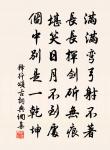 滿滿彎弓射不著
長長揮劍斫無痕
堪笑日月不到處
個中別是一乾坤